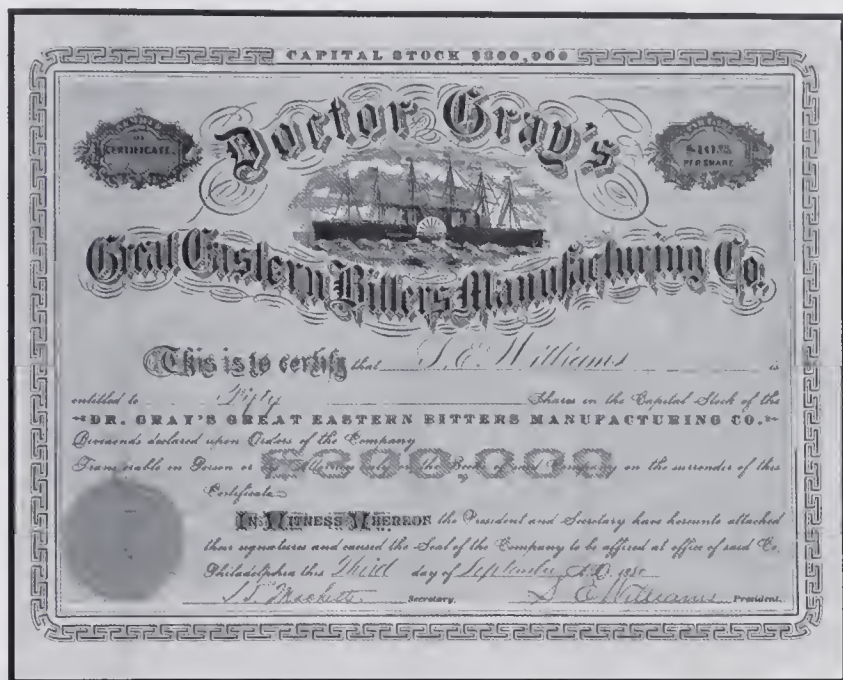 CAPITAL STOCK $300,000
Doctor Gray's
NUMBER
OF
CERTIFICATE.
$10.00
PER SHARE
Great Eastern Bitters Manufacturing Co.
This is to certify that S. E. Williams is
entitled to Fifty Shares in the Capital Stock of the
DR. GRAY'S GREAT EASTERN BITTERS MANUFACTURING CO.
Dividends declared upon Orders of the Company
Transferable in Person or by Attorney only on the Books of said Company on the surrender of this
Certificate
$300,000
IN WITNESS WHEREOF the President and Secretary have hereunto attached
their signatures and caused the Seal of the Company to be affixed at office of said Co.
Philadelphia this Third day of September A.D. 1880
Secretary. S. E. Williams President.